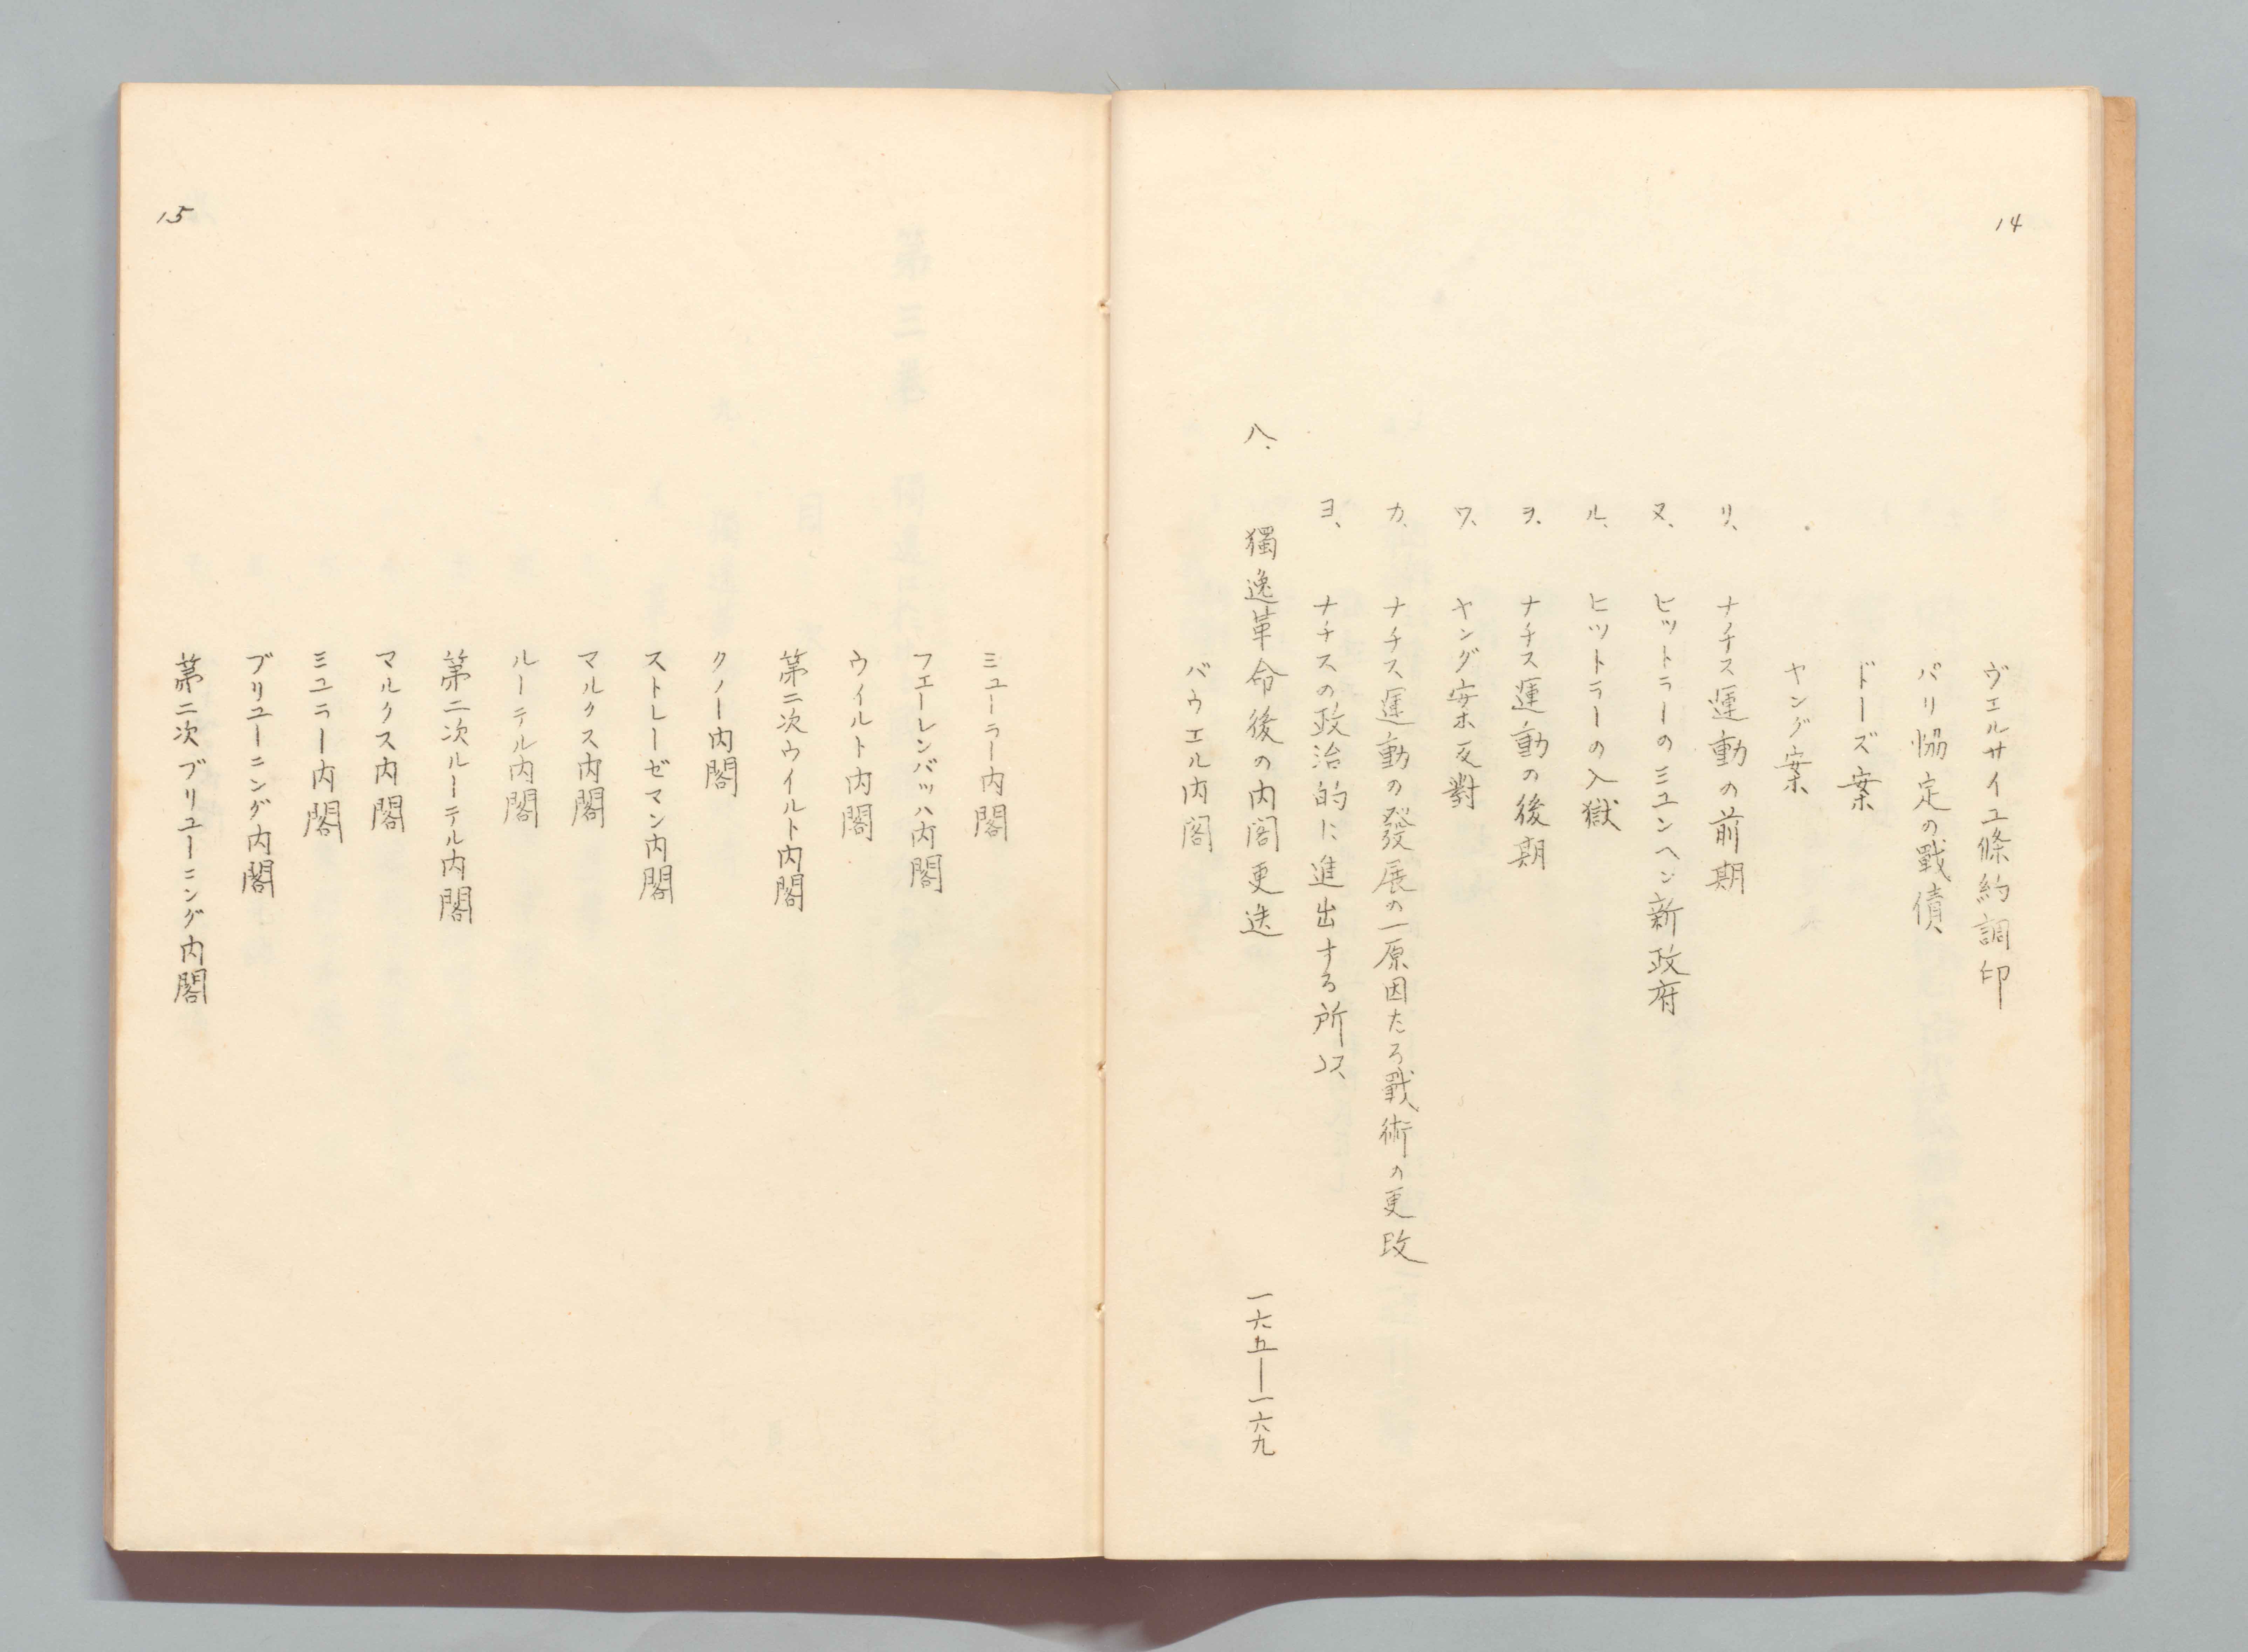 14
ヴエルサイユ條約調印
パリ協定の戰債
ドーズ案
ヤング案
リ、ナチス運動の前期
ヌ、ヒットラーのミユンヘン新政府
ル、ヒットラーの入獄
ヲ、ナチス運動の後期
ワ、ヤング案反對
カ、ナチス運動の發展の一原因たる戰術の更改
ヨ、ナチスの政治的に進出する所以
八、獨逸革命後の内閣更迭 一六五—一六九
バウエル内閣
15
ミユーラー内閣
フエーレンバッハ内閣
ウイルト内閣
第二次ウイルト内閣
クノー内閣
ストレーゼマン内閣
マルクス内閣
ルーテル内閣
第二次ルーテル内閣
マルクス内閣
ミユラー内閣
ブリユーニング内閣
第二次ブリユーニング内閣